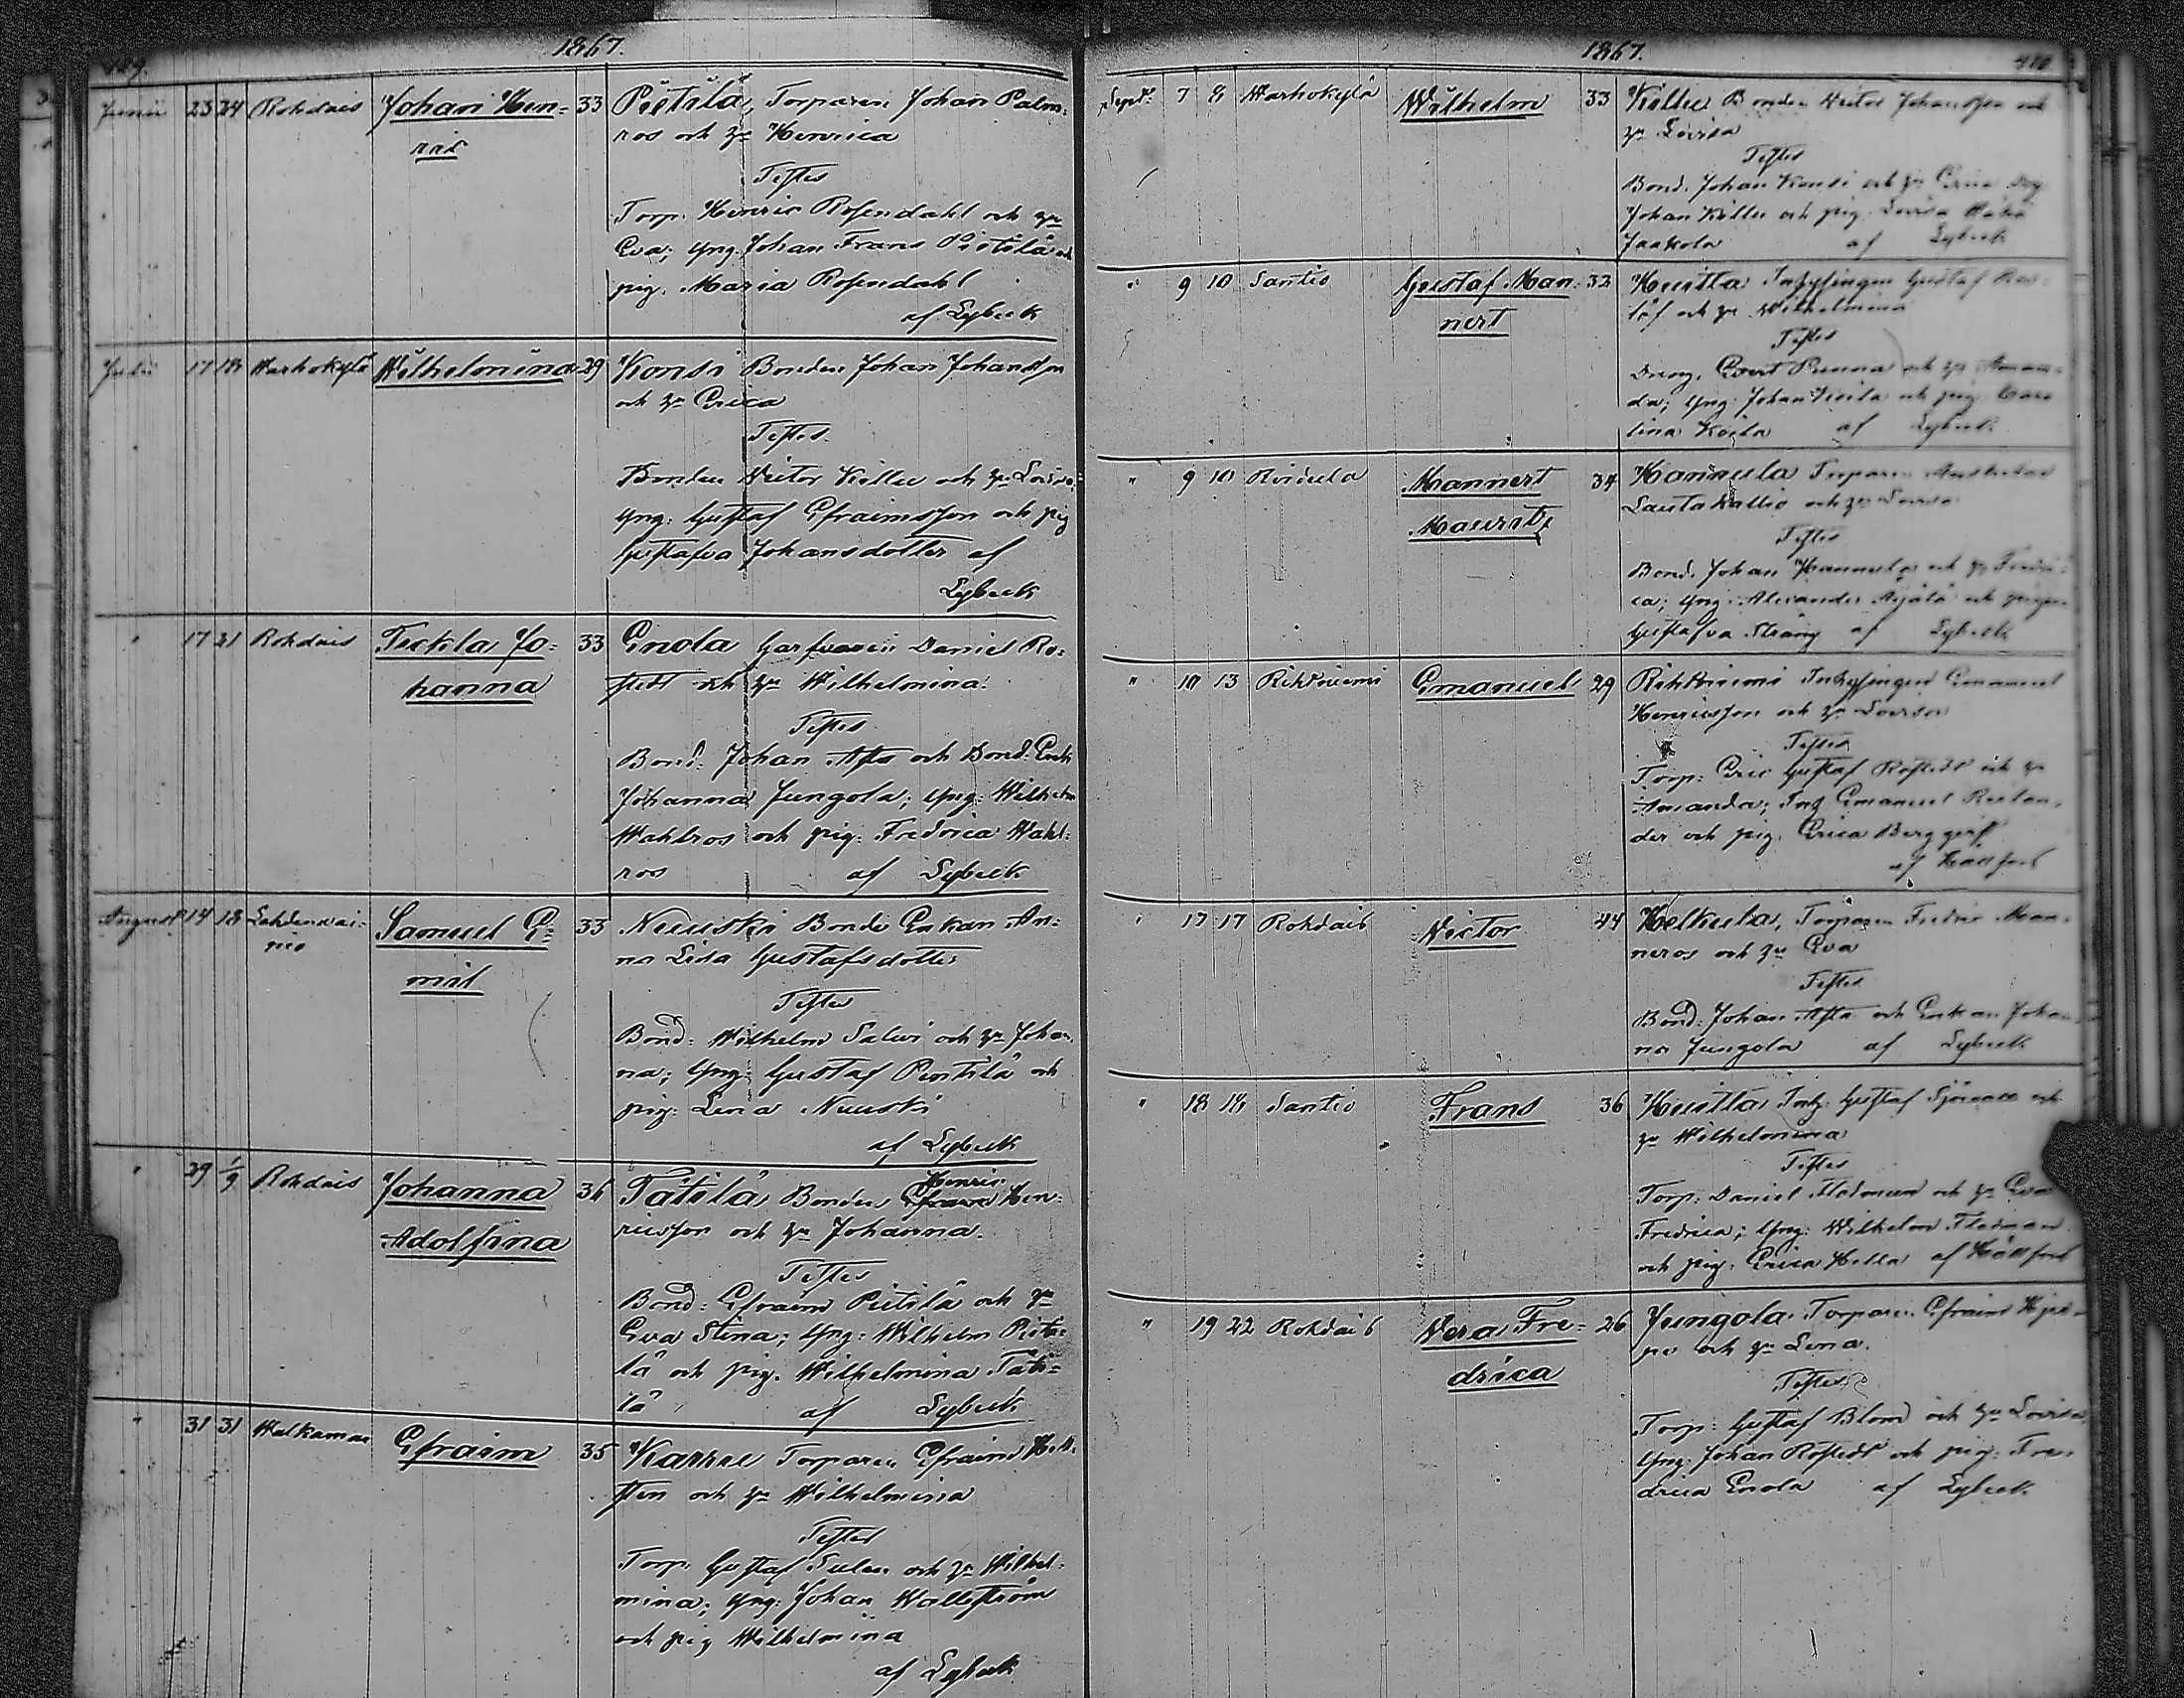 1867.
409.
Junii 23 24 Rohdais Johan Hen= 33 Pietilä, Torparen Johan Palm=
ric ros och hu Henrica
Testes
Torp. Henric Rosendahl och hu
Eva; yng. Johan Frans Pietilä och
pig. Maria Rosendahl
af Lybeck
Julii 17 18 Warhokylä Wilhelmina 29 Konsi Bonden Johan Johansson
och hu Erica
Testes
Bonden Victor Killu och hu Lovisa,
yng: Gustaf Efraimsson och pig
Gustafva Johansdotter af
Lybeck
" 17 21 Rohdais Teckla Jo= 33 Enola Garfvaren Daniel Ro=
hanna stedt och hu Wilhelmina.
Testes
Bond. Johan Asta och Bond: Enk
Johanna Jungola; yng: Wilhelm
Wahlros och pig: Fredrica Wahl=
ros af Lybeck
August 14 18 Lahdenwai= Samuel E= 33 Nuuski Bonde Enkan An=
pio mil na Lisa Gustafsdotter
Testes
Bond: Wilhelm Salwi och hu Johan
na; yng: Gustaf Pentilä och
pig: Lena Nuuski
af Lybeck
" 29 1/9 Rohdais Johanna 36 Tätilä Bonden Efraim Henric Hen=
Adolfina ricsson och hu Johanna.
Testes
Bond: Efraim Pietilä och hu
Eva Stina; yng: Wilhelm Pieti=
lä och pig. Wilhelmina Täti=
lä af Lybeck
" 31 31 Walkamaa Efraim 35 Karree Torparen Efraim Hell=
sten och hu Wilhelmina
Testes
Torp: Gustaf Sulen och hu Wilhel=
mina; yng: Johan Wallström
och pig Wilhelmina
af Lybeck
1867.
410
Sept. 7 8 Warhokylä Wilhelm 33 Killu Bonden Victor Johansson och
hu Lovisa
Testes
Bond. Johan Konsi och hu Erica
Johan Killu och pig. Lovisa
Jaakola af Lybeck
" 9 10 Santio Gustaf Man= 32 Huitta Inhysingen Gustaf
nert och hu Wilhelmina
Testes
Dreng. Evert Runna och hu Aman=
da; yng: Johan Koila och pig Caro
lina Koila af Lybeck
" 9 10 Roidula Mannert 34 Hannula Torparen
Mauritz Lautakallio och hu Lovisa
Testes
Bond. Johan Hannula och hu Fredri=
ca; yng: Alexander Äijälä och pigan
Gustafva Sträng af Lybeck
" 10 13 Rihtniemi Emanuel 29 Rihtniemi Inhysingen Emanuel
Henricsson och hu Lovisa
Testes
Torp: Eric Gustaf Rostedt och hu
Amanda; Inh Emanuel Roslan=
der och pig. Erica Berggist
af
" 17 17 Rohdais Victor 44 Helkula, Torparen Fredric Man=
neros och hu Eva
Testes
Bond: Johan Asta och Enkan Johan
na Jungola af Lybeck
" 18 18 Santio Frans 36 Huitta Inh: Gustaf och
hu Wilhelmina
Testes
Torp: Daniel och hu Eva
Fredrica; yng: Wilhelm
och pig: Erica af
" 19 22 Rohdais Vera Fre= 26 Jungola Torparen Efraim
drica och hu Lena.
Testes
Torp: Gustaf Blom och hu Lovisa
yng: Johan Rostedt och pig: Fre=
drica Enola af Lybeck